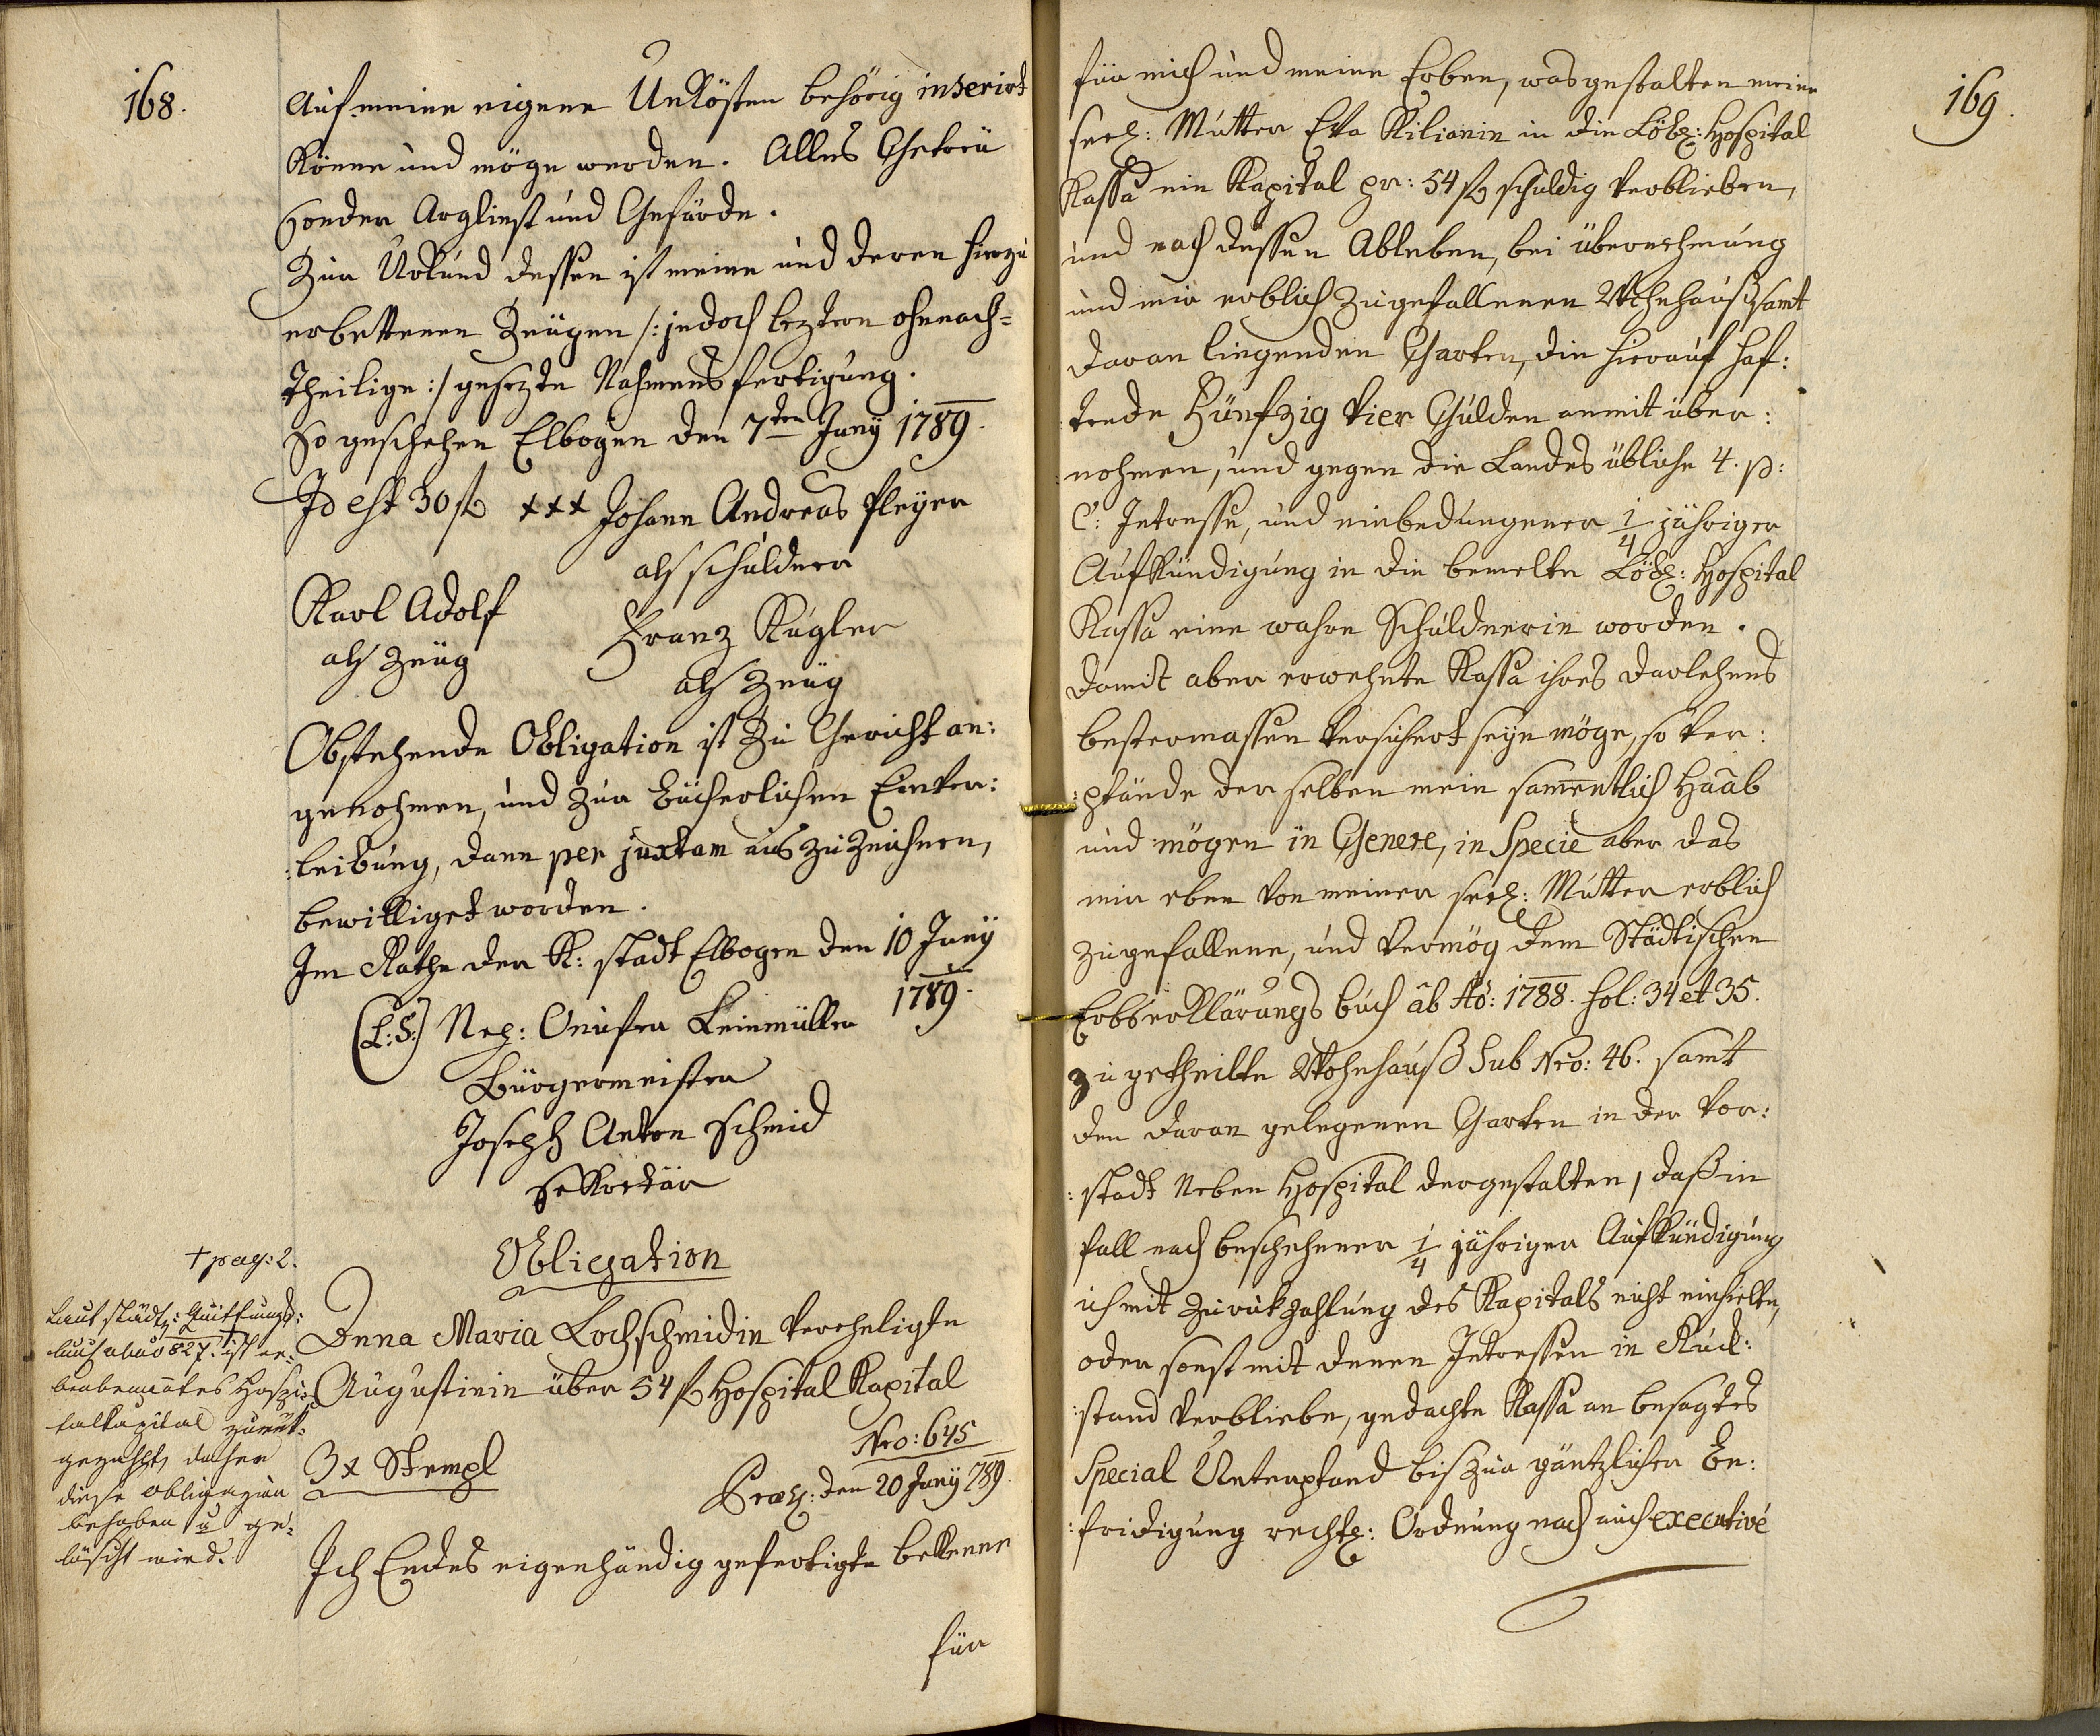 168.
Auf meine eigene Unkösten behörig inserirt
könne und möge werden. Alles Getreü
sonder Arglist und Gefärde.
Zur Urkund dessen ist meine und deren hierzu
erbettenen Zeügen /: jedoch leztern ohnnach=
theilige :/ gesezte Nahmensfertigung.
So geschehen Elbogen den 7ten Juny 1789.
Id est 30 f +++ Johann Andreas Pleyer
als schuldner
Karl Adolf
als Zeüg
Franz Kugler
als Zeüg
Obstehende Obligation ist zu Gericht an:
genohmen, und zur bücherlichen Einver:
:leibung, dann per juxtam auszuzeichnen,
bewilliget worden.
Im Rathe der K: stadt Elbogen den 10 Juny
1789.
(L:S:) Leinmüller
Bürgermeister
Joseph Anton Schmid
Sekretär
Obligation
+ pag: 2.
Laut städt: Quittungs:
buch ab ao 827. ist er:
benbenantes Hospi:
talkapital zurük:
gezahlt, daher
diese obligazion
behoben u ge:
löscht wird.
Anna Maria Lochschmidin vereheligte
Augustinin über 54 f Hospital Kapital
Nro: 645
3 x Stempl
Præs: den 20 Juny 789.
Ich Endes eigenhändig gefertigte bekenne
für
169.
für mich und meine Erben, was gestalten meine
seel: Mutter Eva Kilianin in die Löbl: Hospital
Kassa ein Kapital pr: 54 f schuldig verblieben,
und nach dessen Ableben, bei übernehmung
und mir erblich zugefallenen Wohnhauß samt
daran liegenden Garten, die hierauf haf:
tende Fünfzig Vier Gulden anmit über:
nohmen, und gegen die Landes übliche 4. p:
C: Intresse, und einbedungener 1/4 jähriger
Aufkündigung in die bemelte Löbl: Hospital
Kassa eine wahre Schuldnerin worden.
Damit aber erwehnte Kassa ihres darlehens
bestermassen versichert seyn möge, so ver:
:pfände derselben mein samentlich Haab
und mögen in Genere, in Specie aber das
mir eben von meiner seel: Mutter erblich
zugefallene, und vermög dem Städtischen
Erbserklärungs buch ab Ao: 1788. fol: 34 et 35.
zugetheilte Wohnhauß Sub Nro: 46. samt
den daran gelegenen Garten in der Vor:
:stadt neben Hospital dergestalten, daß in
fall nach beschehener 1/4 jähriger Aufkündigung
ich mit zurükzahlung des Kapitals nicht einhielte,
oder sonst mit denen Intressen in Ruck:
:stand verbliebe, gedachte Kassa an besagtes
Special Unterpfand bis zur gäntzlichen Be:
:fridigung rechtl: Ordnung nach auch executivé